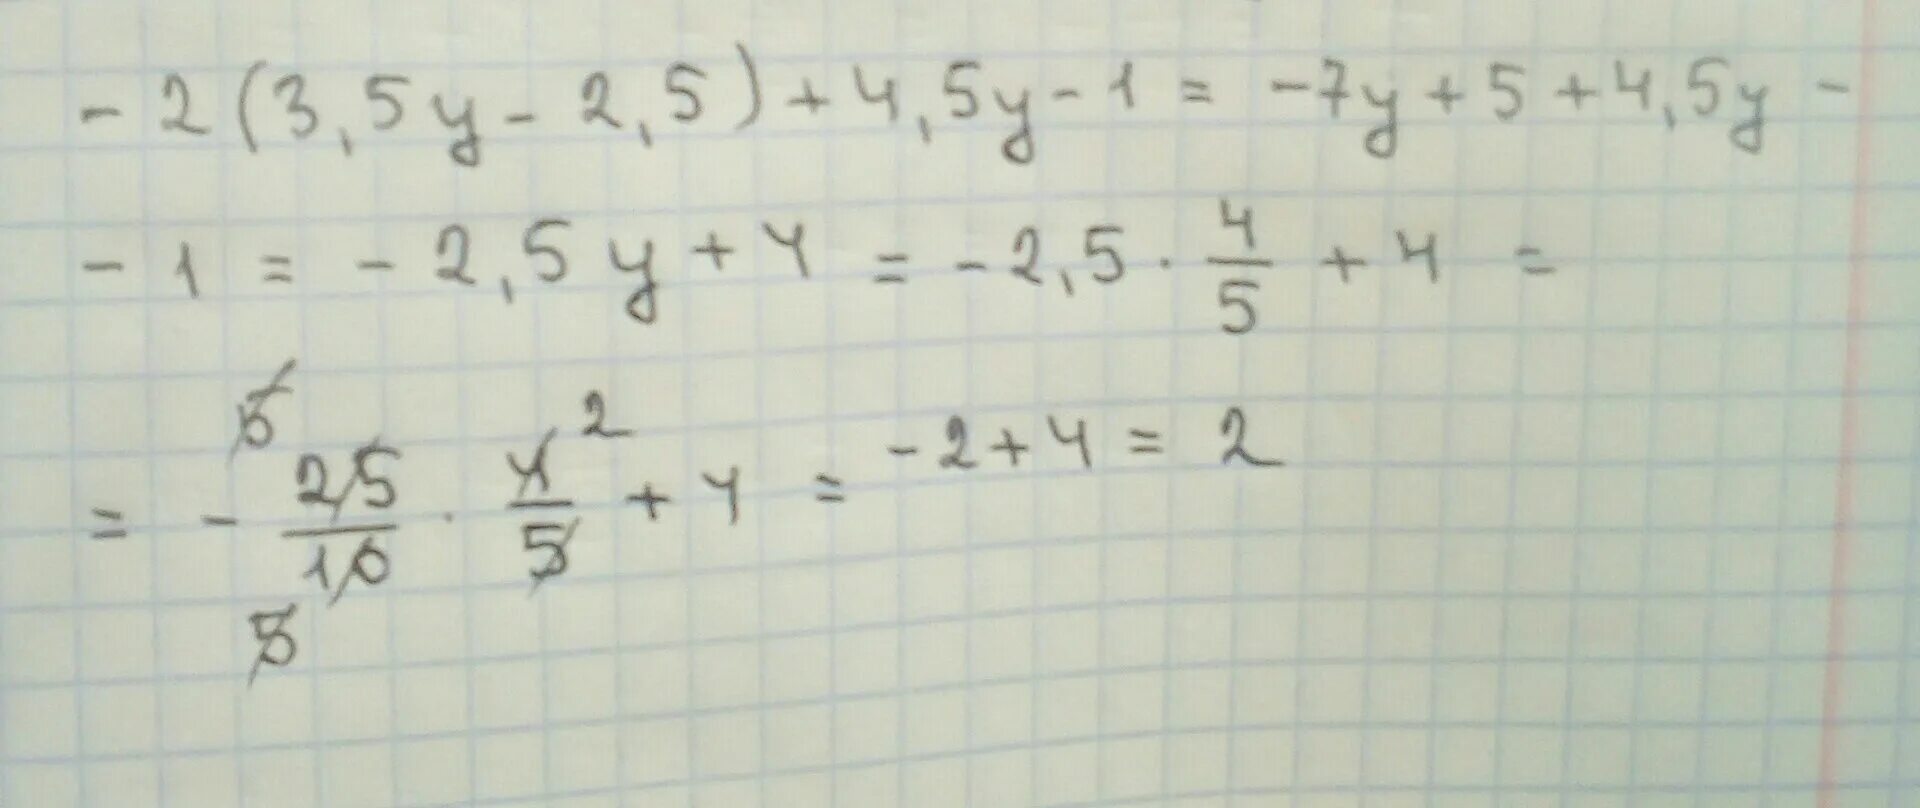 - 2 (3,5y - 2,5) + 4,5y - 1 = -7y + 5 + 4,5y -
- 1 = - 2,5y + 4 = - 2,5 · 4/5 + 4 =
5 2
= - 25/10 · 4/5 + 4 = -2 + 4 = 2
5